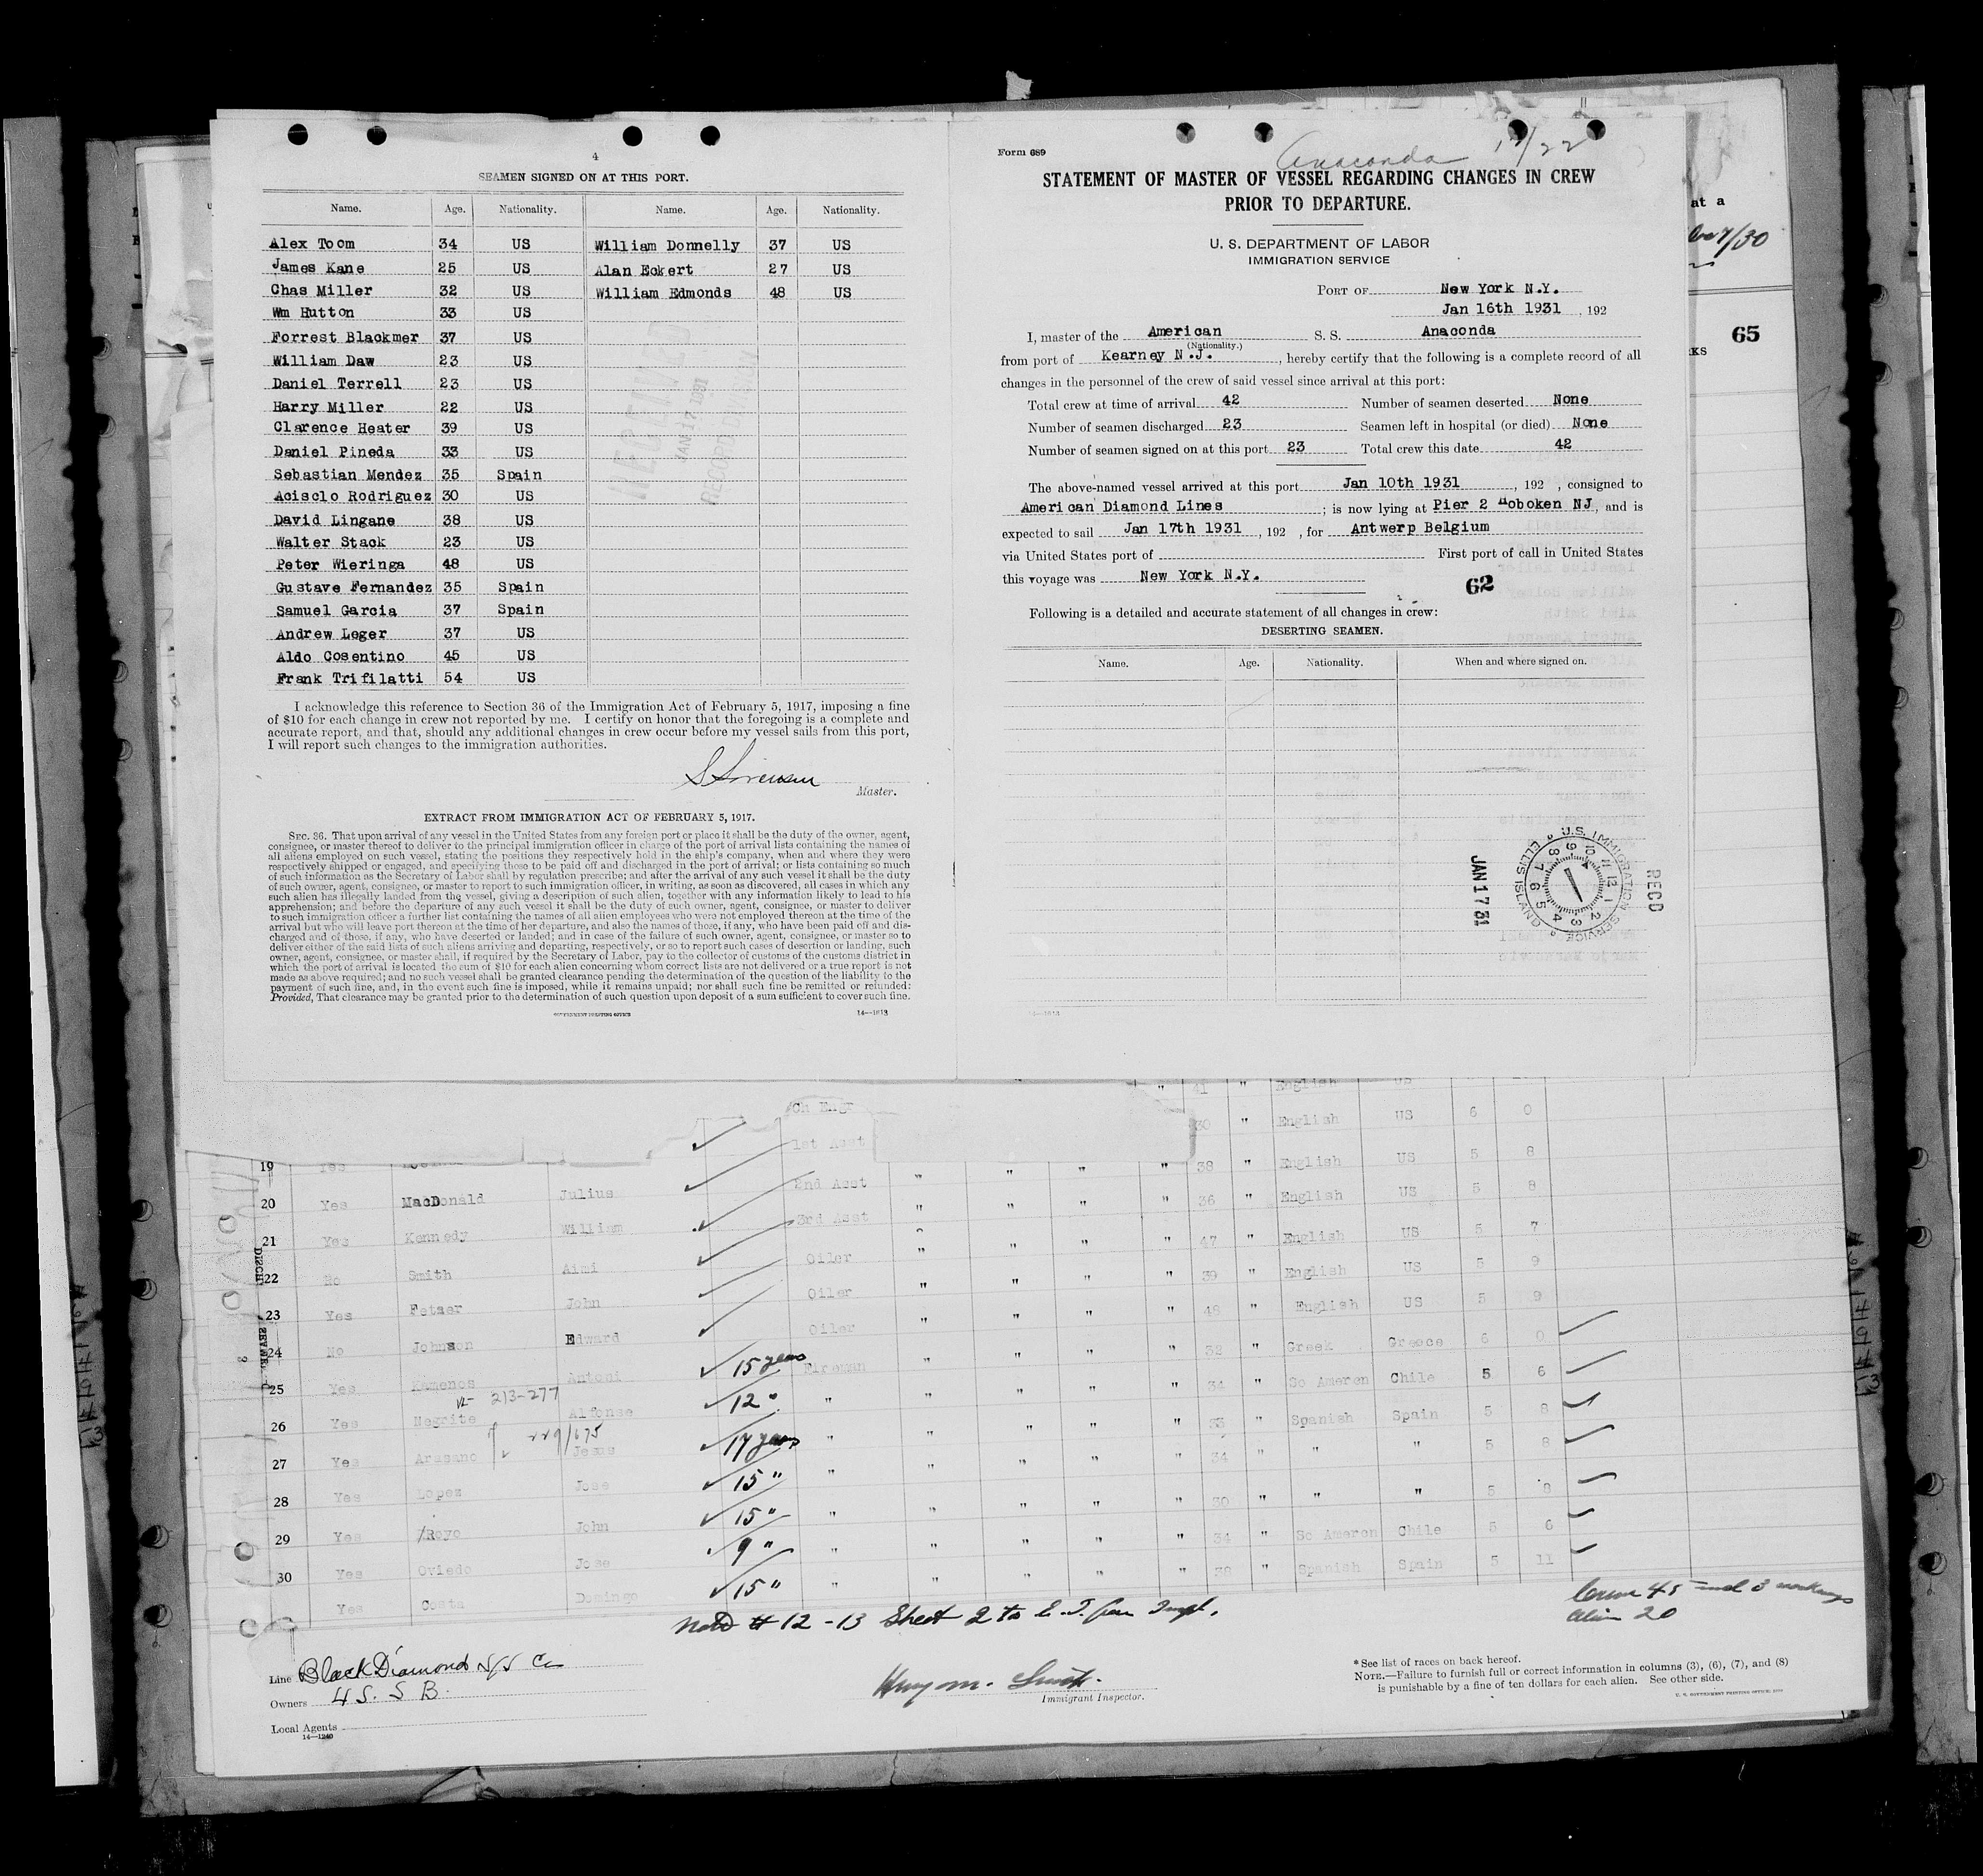 4
SEAMEN SIGNED ON AT THIS PORT.
Name. Age. Nationality. Name. Age. Nationality.
Alex Toom 34 US William Donnelly 37 US
James Kane 25 US Alan Eckert 27 US
Chas Miller 32 US William Edmonds 48 US
Wm Hutton 33 US
Forrest Blackmer 37 US
William Daw 23 US
Daniel Terrell 23 US
Harry Miller 22 US
Clarence Heater 39 US
Daniel Pineda 33 US
Sebastian Mendez 35 Spain
Acisclo Rodriguez 30 US
David Lingane 38 US
Walter Stack 23 US
Peter Wieringa 48 US
Gustave Fernandez 35 Spain
Samuel Garcia 37 Spain
Andrew Leger 37 US
Aldo Cosentino 45 US
Frank Trifilatti 54 US
RECEIVED
JAN 17 1931
RECORD DIVISION
I acknowledge this reference to Section 36 of the Immigration Act of February 5, 1917, imposing a fine
of $10 for each change in crew not reported by me. I certify on honor that the foregoing is a complete and
accurate report, and that, should any additional changes in crew occur before my vessel sails from this port,
I will report such changes to the immigration authorities.
S Sorensen
Master.
EXTRACT FROM IMMIGRATION ACT OF FEBRUARY 5, 1917.
SEC. 36. That upon arrival of any vessel in the United States from any foreign port or place it shall be the duty of the owner, agent,
consignee, or master thereof to deliver to the principal immigration officer in charge of the port of arrival lists containing the names of
all aliens employed on such vessel, stating the positions they respectively hold in the ship's company, when and where they were
respectively shipped or engaged, and specifying those to be paid off and discharged in the port of arrival; or lists containing so much
of such information as the Secretary of Labor shall by regulation prescribe; and after the arrival of any such vessel it shall be the duty
of such owner, agent, consignee, or master to report to such immigration officer, in writing, as soon as discovered, all cases in which any
such alien has illegally landed from the vessel, giving a description of such alien, together with any information likely to lead to his
apprehension; and before the departure of any such vessel it shall be the duty of such owner, agent, consignee, or master to deliver
to such immigration officer a further list containing the names of all alien employees who were not employed thereon at the time of the
arrival but who will leave port thereon at the time of her departure, and also the names of those, if any, who have been paid off and dis-
charged and of those, if any, who have deserted or landed; and in case of the failure of such owner, agent, consignee, or master so to
deliver either of the said lists of such aliens arriving and departing, respectively, or so to report such cases of desertion or landing, such
owner, agent, consignee, or master shall, if required by the Secretary of Labor, pay to the collector of customs of the customs district in
which the port of arrival is located the sum of $10 for each alien concerning whom correct lists are not delivered or a true report is not
made as above required; and no such vessel shall be granted clearance pending the determination of the question of the liability to the
payment of such fine, and, in the event such fine is imposed, while it remains unpaid; nor shall such fine be remitted or refunded:
Provided, That clearance may be granted prior to the determination of such question upon deposit of a sum sufficient to cover such fine.
GOVERNMENT PRINTING OFFICE 14—1613
Form 689
Anaconda 12/22
STATEMENT OF MASTER OF VESSEL REGARDING CHANGES IN CREW
PRIOR TO DEPARTURE.
U. S. DEPARTMENT OF LABOR
IMMIGRATION SERVICE
PORT OF New York N.Y.
Jan 16th 1931, 192
I, master of the American S. S. Anaconda
(Nationality.)
from port of Kearney N.J., hereby certify that the following is a complete record of all
changes in the personnel of the crew of said vessel since arrival at this port:
Total crew at time of arrival 42 Number of seamen deserted None
Number of seamen discharged 23 Seamen left in hospital (or died) None
Number of seamen signed on at this port 23 Total crew this date 42
The above-named vessel arrived at this port Jan 10th 1931, 192 , consigned to
American Diamond Lines; is now lying at Pier 2 Hoboken NJ, and is
expected to sail Jan 17th 1931, 192 , for Antwerp Belgium
via United States port of First port of call in United States
this voyage was New York N.Y.
62
Following is a detailed and accurate statement of all changes in crew:
DESERTING SEAMEN.
Name. Age. Nationality. When and where signed on.
JAN 17 31
U.S. IMMIGRATION SERVICE ELLIS ISLAND
RECD
14—1613
at a
65
KS
41 " English US
Ch Engr 30 " English US 6 0
1st Asst " 38 " English US 5 8
19 Yes
20 Yes MacDonald Julius 2nd Asst " " " " 36 " English US 5 8
21 Yes Kennedy William 3rd Asst " " " " 47 " English US 5 7
22 No Smith Aimi Oiler " " " " 39 " English US 5 9
23 Yes Fetzer John Oiler " " " " 48 " English US 5 9
24 No Johnson Edward Oiler " " " " 32 " Greek Greece 6 0
25 Yes Kamenos Antoni 15 years Fireman " " " " 34 " So Ameren Chile 5 6
213-277
26 Yes Negrite Alfonse 12 " " " " " " 33 " Spanish Spain 5 8
229/675
27 Yes Aragano Jesus 17 years " " " " " 34 " " " 5 8
28 Yes Lopez Jose 15 " " " " " " 30 " " " 5 8
29 Yes Royo John 15 " " " " " " 34 " So Ameren Chile 5 6
30 Yes Oviedo Jose 9 " " " " " " 38 " Spanish Spain 5 11
Yes Costa Domingo 15 " "
Note # 12 - 13 Sheet 2 to E. I. for Inspt.
Crew 45 incl 3 workaways
Alien 20
Line Black Diamond S/S Co
Owners U S. S B.
Local Agents
14—1240
Henry M. Smith.
Immigrant Inspector.
* See list of races on back hereof.
NOTE.—Failure to furnish full or correct information in columns (3), (6), (7), and (8)
is punishable by a fine of ten dollars for each alien. See other side.
U. S. GOVERNMENT PRINTING OFFICE